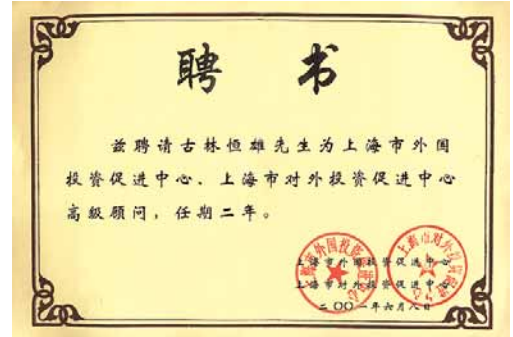 聘书
兹聘请古林恒雄先生为上海市外国
投资促进中心、上海市对外投资促进中心
高级顾问，任期二年。
上海市外国投资促进中心
上海市对外投资促进中心
二〇〇一年六月八日